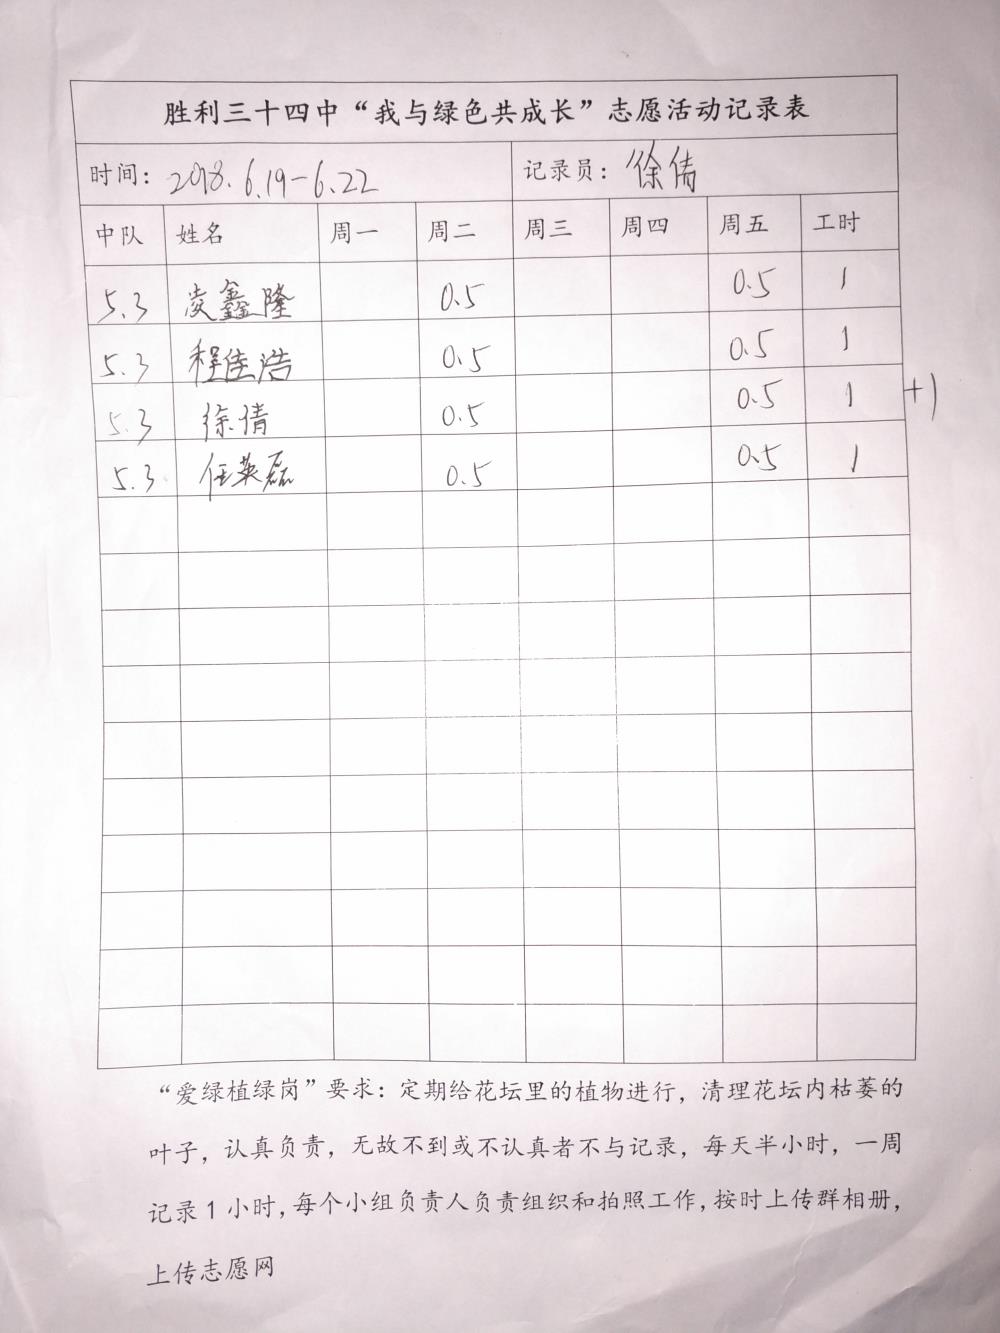 胜利三十四中“我与绿色共成长”志愿活动记录表
时间：2018.6.19-6.22 记录员：徐倩
中队 姓名 周一 周二 周三 周四 周五 工时
5.3 凌鑫隆 0.5 0.5 1
5.3 程佳浩 0.5 0.5 1
5.3 徐倩 0.5 0.5 1 +1
5.3 任英磊 0.5 0.5 1
“爱绿植绿岗”要求：定期给花坛里的植物进行，清理花坛内枯萎的
叶子，认真负责，无故不到或不认真者不与记录，每天半小时，一周
记录1小时，每个小组负责人负责组织和拍照工作，按时上传群相册，
上传志愿网